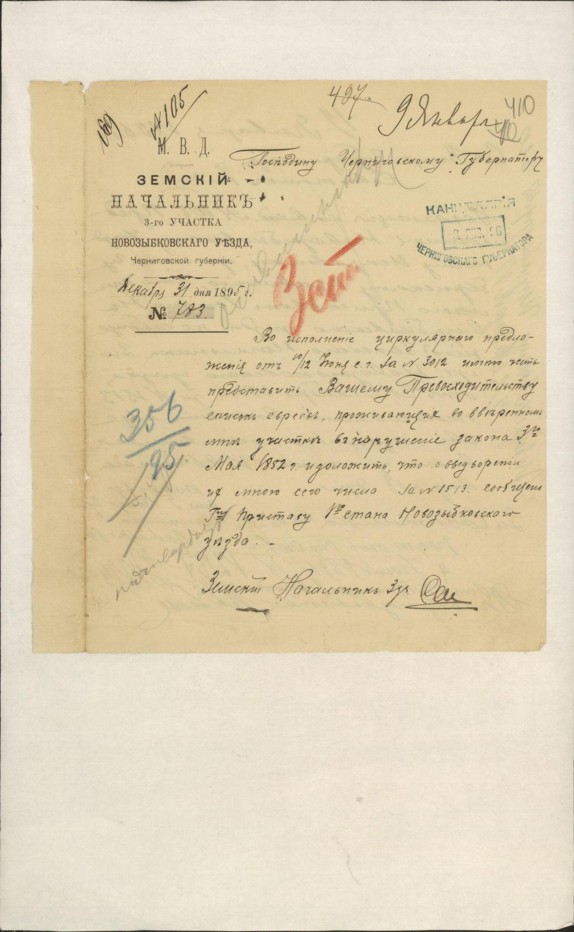 169
№ 105
497
9 Январ
410
М. В. Д.
ЗЕМСКІЙ
НАЧАЛЬНИКЪ
3-го УЧАСТКА
НОВОЗЫБКОВСКАГО УѢЗДА,
Черниговской губерніи.
Декабря 31 дня 1895 г.
№ 783.
Господину Черниговскому Губернатору
КАНЦЕЛЯРІЯ
ЧЕРНИГОВСКАГО ГУБЕРНАТОРА
3 ст
Во исполненіе циркулярнаго предло-
женія отъ 10/12 Іюня с. г. за № 3012 имѣю честь
представить Вашему Превосходительству
списокъ евреевъ, проживающихъ во ввѣренномъ
мнѣ участкѣ въ нарушеніе закона 3го
Мая 1882 г. и доложить, что о выдвореніи
ихъ мною сего числа за № 1513 сообщено
Приставу 1го стана Новозыбковскаго
уѣзда. –
356
95
Земскій Начальникъ 3 уч.